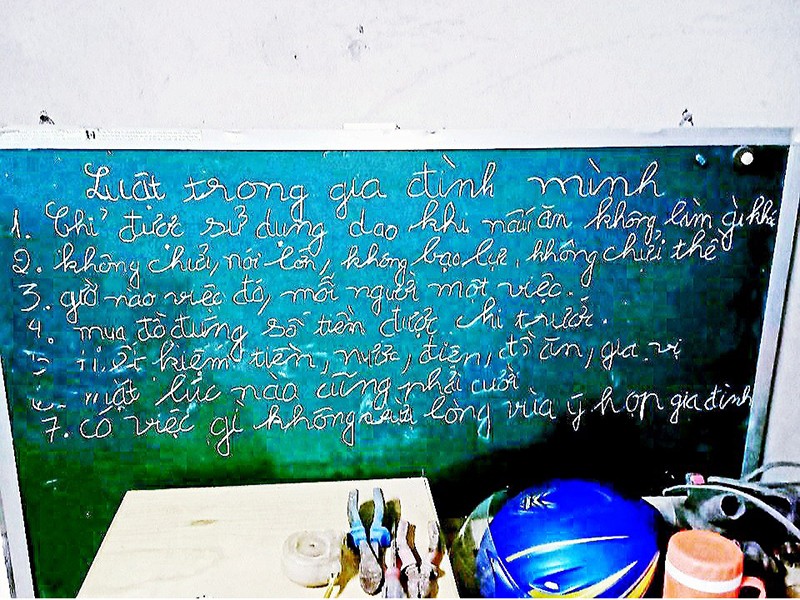 Luật trong gia đình mình
1. Chỉ được sử dụng dao khi nấu ăn không làm gì khác
2. không chửi, nói lớn, không bạo lực, không chửi thề
3. giờ nào việc đó, mỗi người một việc.
4. mua đồ đúng số tiền được chi trước.
5 tiết kiệm tiền, nước, điện, đồ ăn, gia vị
mặt lúc nào cũng phải cười
7. có việc gì không vừa lòng vừa ý họp gia đình